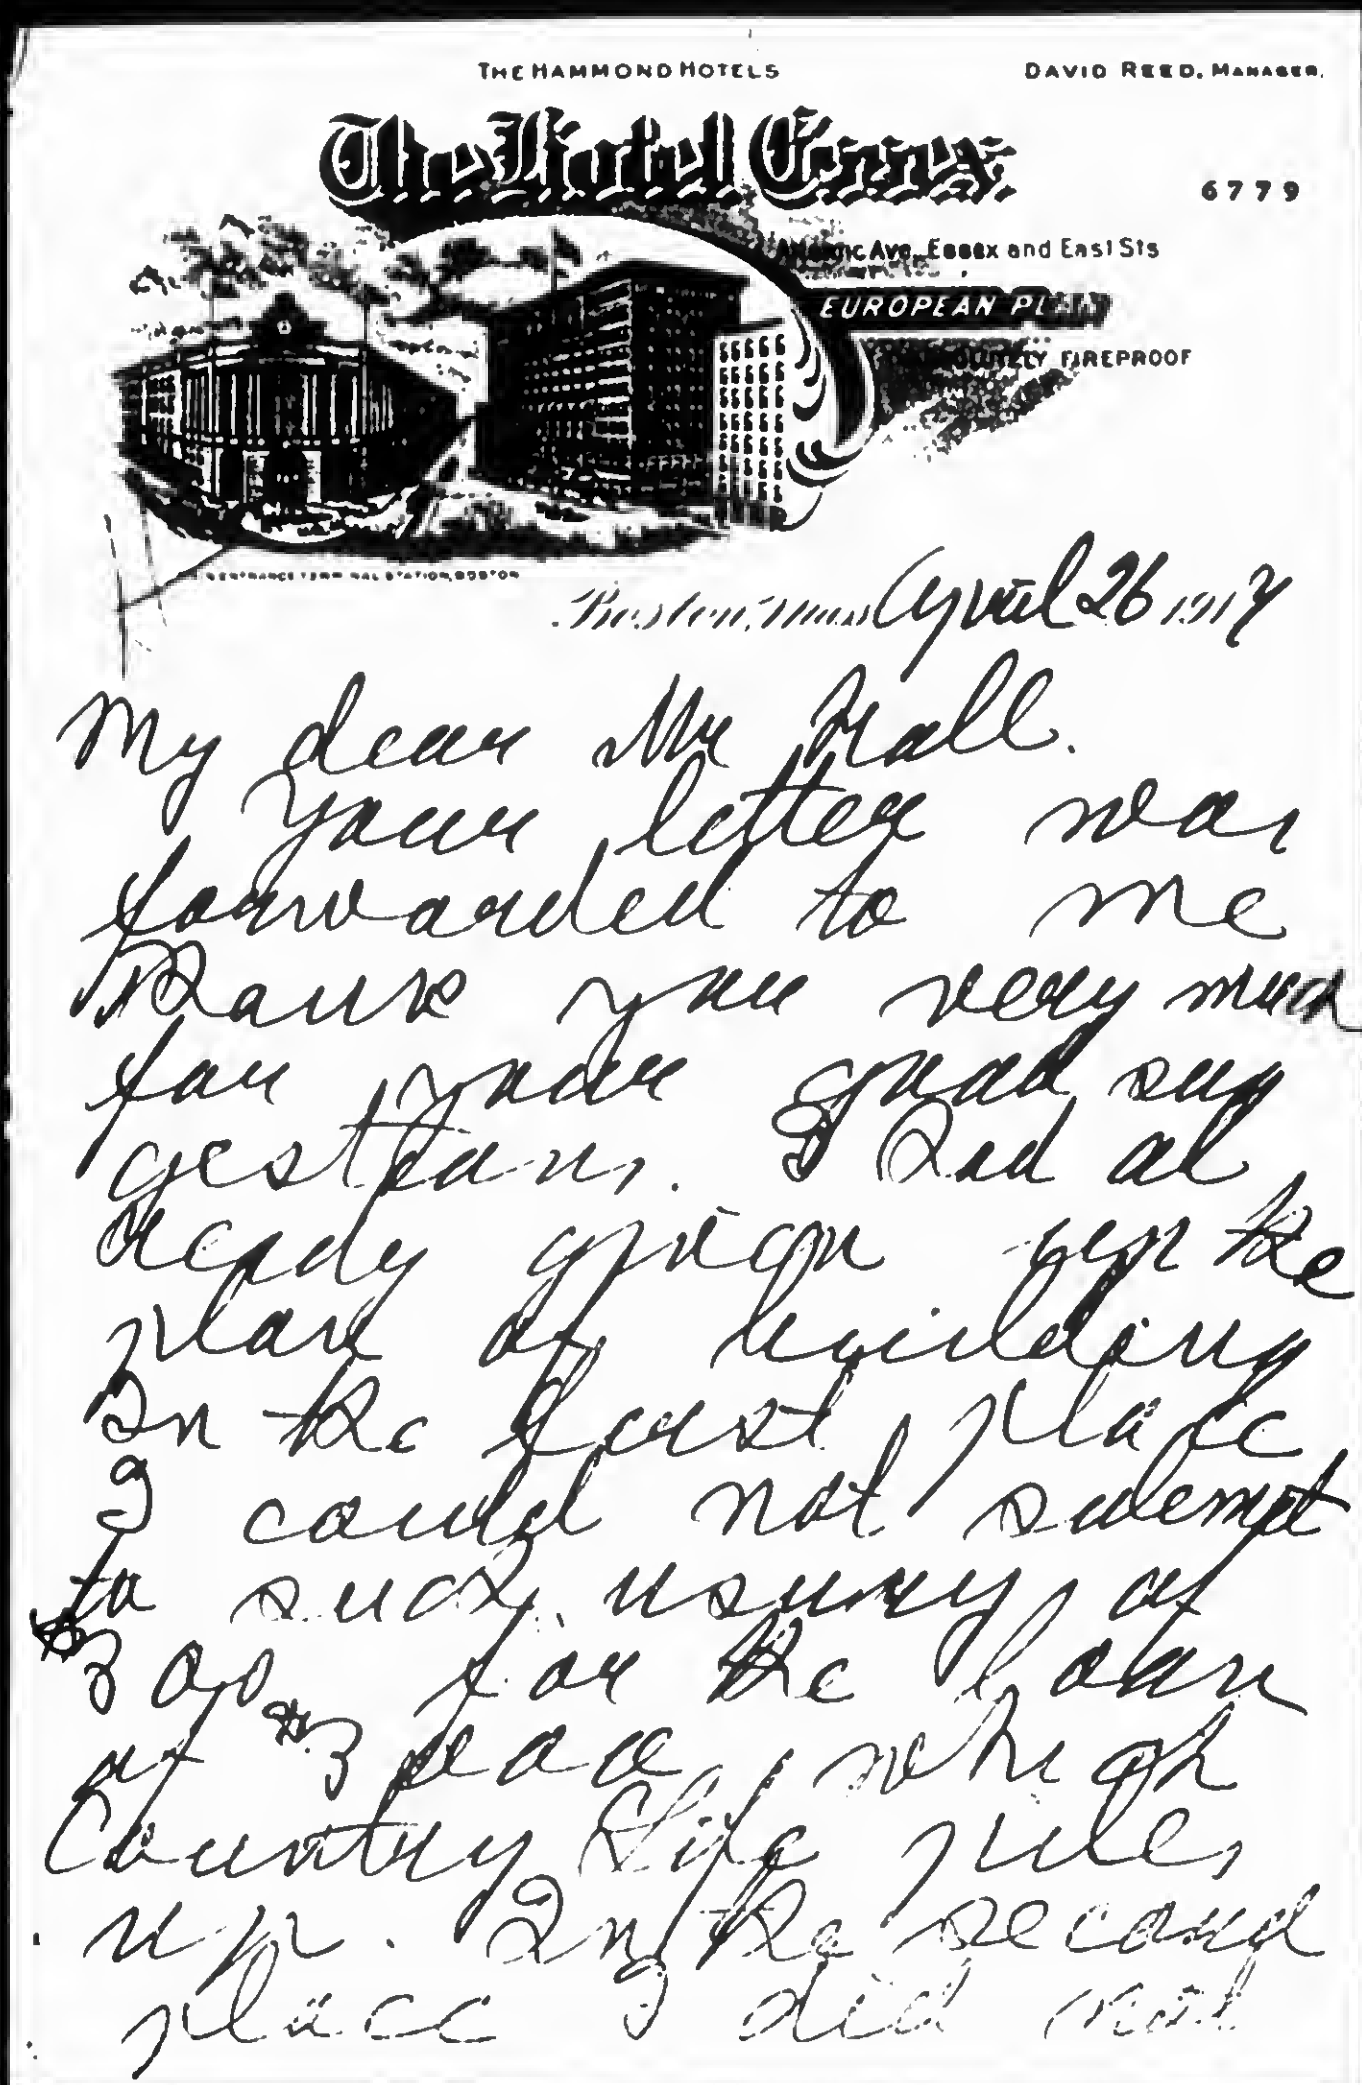 THE HAMMOND HOTELS
DAVID REED, MANAGER.
The Hotel Essex
6779
Atlantic Ave., Essex and East Sts
EUROPEAN PLAN
ABSOLUTELY FIREPROOF
ENTRANCE TERMINAL STATION, BOSTON
Boston, Mass April 26 1917
My dear Mr Hall.
Your letter was
forwarded to me
Thank you very much
for your good sug
gestions. I had al
ready given up the
plan of building
In the first place
I could not submit
to such usury of
$300 for the loan
of $3000 which
Country Life piles
up. In the second
place I did not